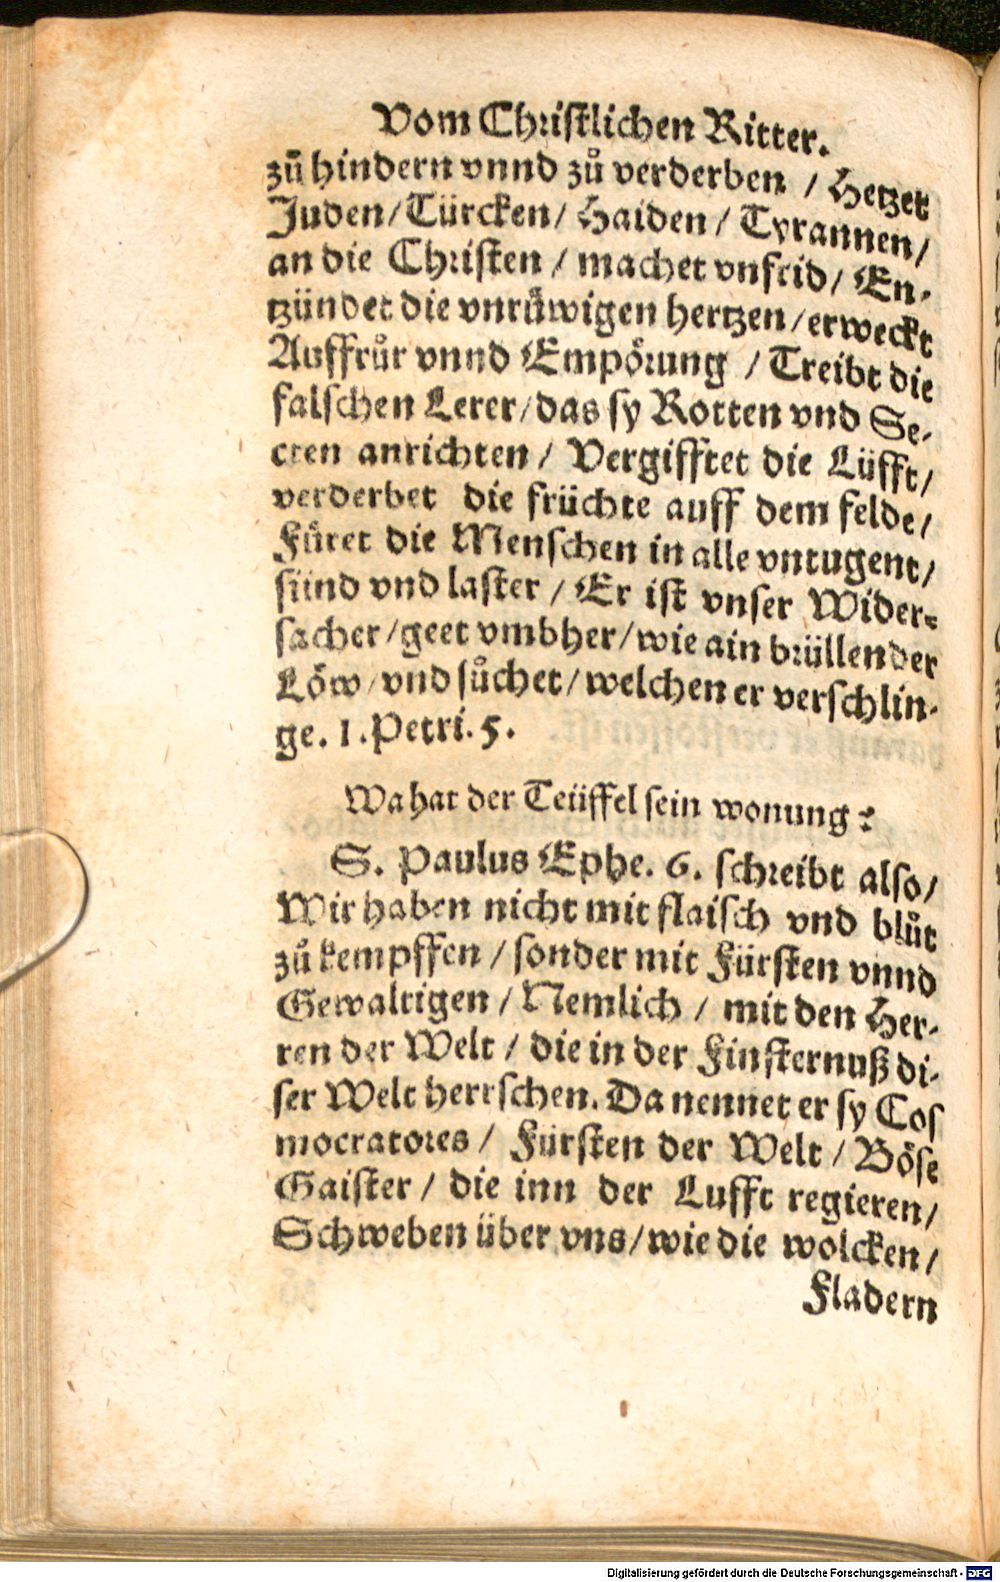 Vom Christlichen Ritter.
zů hindern vnnd zů verderben / Hetzet
Juden/Türcken/ Haiden / Tyrannen/
an die Christen / machet vnfrid/ En-
tzündet die vnrůwigen hertzen/erweckt
Auffrůr vnnd Empörung / Treibt die
falschen Lerer/das sy Rotten vnd Se-
cten anrichten / Vergifftet die Lüfft/
verderbet die früchte auff dem felde/
Füret die Menschen in alle vntugent/
sünd vnd laster / Er ist vnser Wider-
sacher/geet vmbher/wie ain brüllender
Löw/vnd sůchet/welchen er verschlin-
ge. 1. Petri. 5.
Wa hat der Teüffel sein wonung?
S. Paulus Ephe. 6. schreibt also/
Wir haben nicht mit flaisch vnd blůt
zů kempffen / sonder mit Fürsten vnnd
Gewaltigen / Nemlich / mit den Her-
ren der Welt / die in der Finsternuß di-
ser Welt herrschen. Da nennet er sy Cos
mocratores / Fürsten der Welt / Böse
Gaister / die inn der Lufft regieren/
Schweben über vns/wie die wolcken/
Fladern
Digitalisierung gefördert durch die Deutsche Forschungsgemeinschaft - DFG